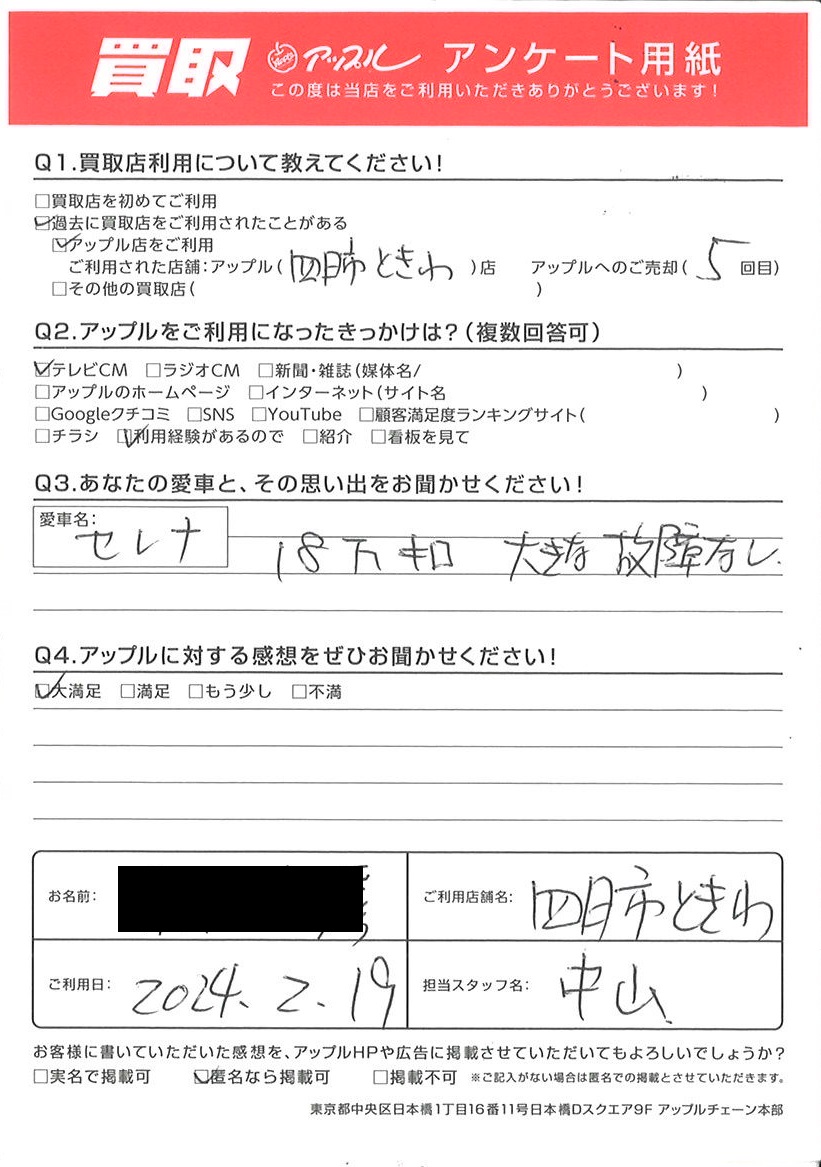 買取 アップル アンケート用紙
この度は当店をご利用いただきありがとうございます!
Q1.買取店利用について教えてください!
□買取店を初めてご利用
☑過去に買取店をご利用されたことがある
☑アップル店をご利用
ご利用された店舗:アップル(四日市ときわ)店 アップルへのご売却(5回目)
□その他の買取店( )
Q2.アップルをご利用になったきっかけは?(複数回答可)
☑テレビCM □ラジオCM □新聞・雑誌(媒体名/ )
□アップルのホームページ □インターネット(サイト名 )
□Googleクチコミ □SNS □YouTube □顧客満足度ランキングサイト( )
□チラシ ☑利用経験があるので □紹介 □看板を見て
Q3.あなたの愛車と、その思い出をお聞かせください!
愛車名: セレナ 18万キロ 大きな故障なし.
Q4.アップルに対する感想をぜひお聞かせください!
☑大満足 □満足 □もう少し □不満
お名前: ご利用店舗名: 四日市ときわ
ご利用日: 2024.2.19 担当スタッフ名: 中山
お客様に書いていただいた感想を、アップルHPや広告に掲載させていただいてもよろしいでしょうか?
□実名で掲載可 ☑匿名なら掲載可 □掲載不可 ※ご記入がない場合は匿名での掲載とさせていただきます。
東京都中央区日本橋1丁目16番11号日本橋Dスクエア9F アップルチェーン本部